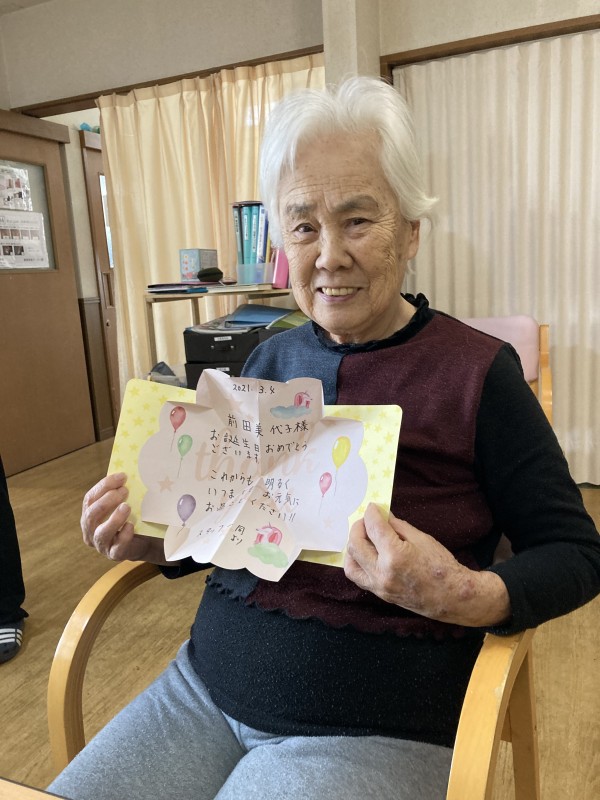 2021. 3. 4
前田美代子様
お誕生日おめでとう
ございます
これからも 明るく
いつまでも お元気に
お過ごしください!!
スタッフ一同
より